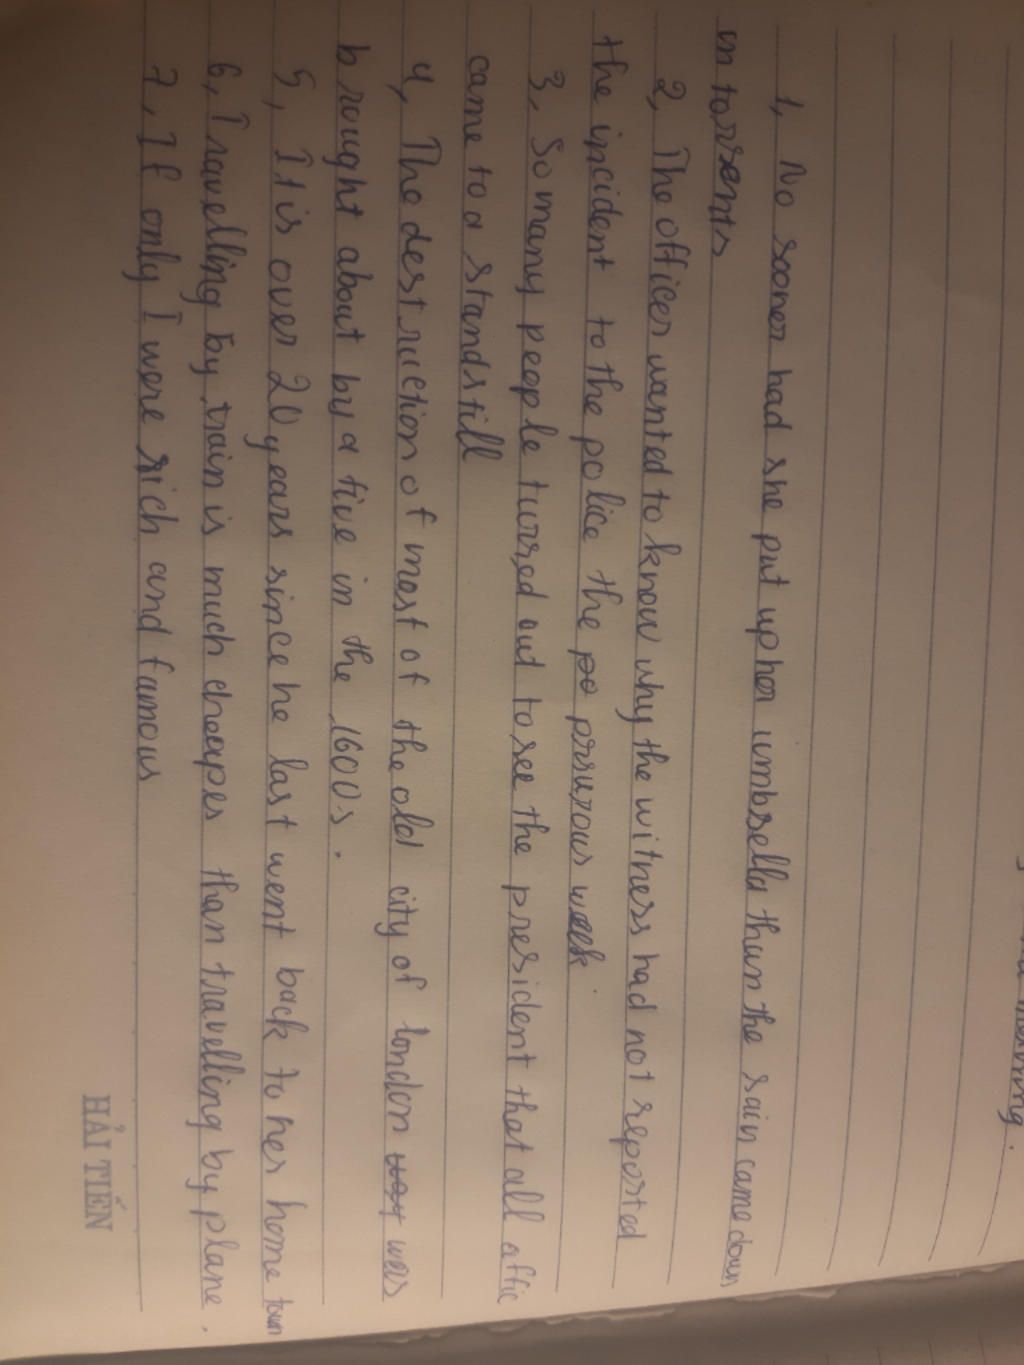 1, No sooner had she put up her umbrella than the rain came down
in torrents
2, The officer wanted to know why the witness had not reported
the incident to the police the po previous week.
3, So many people turned out to see the president that all affic
came to a standstill
4, The destruction of most of the old city of london was
brought about by a five in the 1600s.
5, It is over 20 years since he last went back to her home town
6, Travelling by train is much cheaper than travelling by plane.
7, If only I were rich and famous
HẢI TIẾN